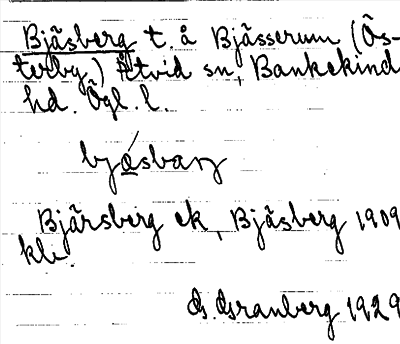 Bjäsberg t. å Bjässerum (Ös-
terby) Åtvid sn, Bankekind
hd. Ögl. l.
Bjärsberg ek, Bjäsberg 1909
kle.
G. Granberg 1929